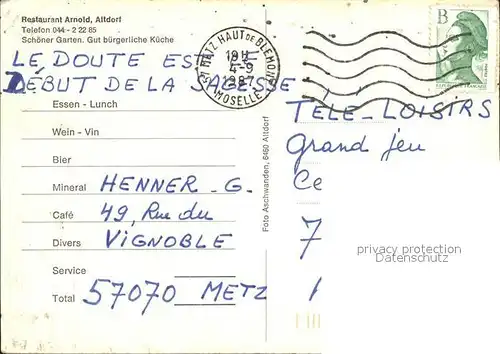 Restaurant Arnold, Altdorf
Telefon 044 - 2 22 85
Schöner Garten. Gut bürgerliche Küche
LE DOUTE EST LE
DÉBUT DE LA SAGESSE
Essen - Lunch
Wein - Vin
Bier
Mineral
Café
Divers
Service
Total
HENNER - G.
49, Rue du
VIGNOBLE
57070 METZ
Foto Aschwanden, 6460 Altdorf
57 METZ HAUT DE BLEMONT
19H
4-9
1987
MOSELLE
B
TÉLÉ-LOISIRS
Grand jeu
Ce
7
1
privacy protection
Datenschutz